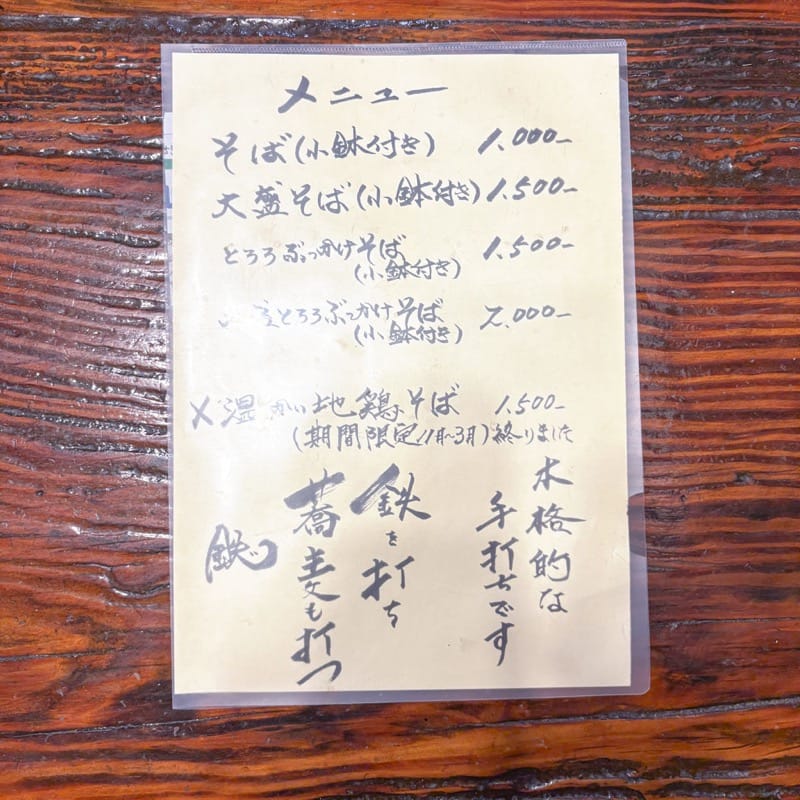 メニュー
そば(小鉢付き) 1.000-
大盛そば(小鉢付き) 1.500-
とろろぶっかけそば 1.500-
(小鉢付き)
とろろぶっかけそば 2.000-
(小鉢付き)
✕温かい地鶏そば 1.500-
(期間限定11月~3月)終りました
本格的な
手打ちです
鉄を打ち
蕎麦も打つ